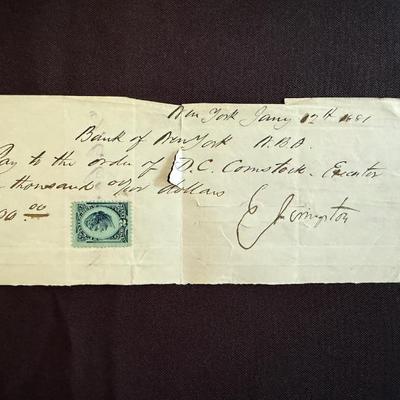 New York Jany 12th 1881
Bank of New York N.B.A.
Pay to the order of D.C. Comstock. Executor
thousand 00/100 dollars
00.00